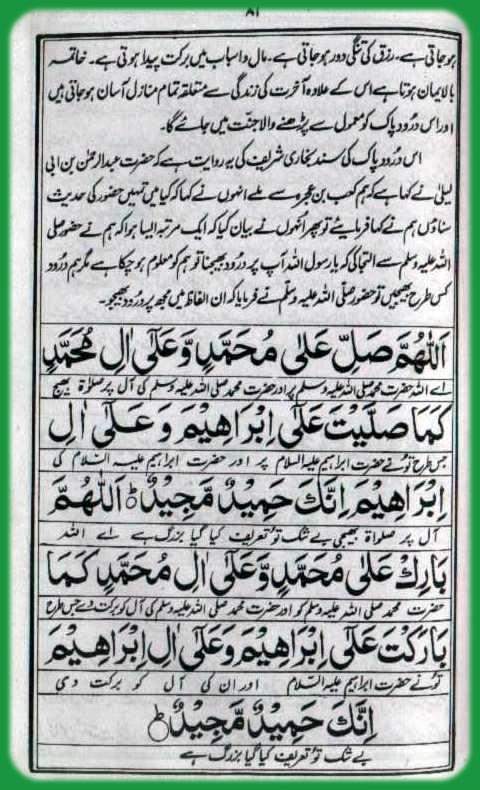 ۸۱
ہوجاتی ہے۔ رزق کی تنگی دور ہوجاتی ہے۔ مال و اسباب میں برکت پیدا ہوتی ہے۔ خاتمہ
بالایمان ہوتا ہے اس کے علاوہ آخرت کی زندگی سے متعلقہ تمام منازل آسان ہوجاتی ہیں
اور اس درُود پاک کو معمول سے پڑھنے والا جنّت میں جائے گا۔
اس درُود پاک کی سند بخاری شریف کی یہ روایت ہے کہ حضرت عبدالرحمٰن بن ابی
لیلیٰ نے کہا ہے کہ ہم کعب بن عجرہ سے ملے انہوں نے کہا کہ کیا میں تمہیں حضور کی حدیث
سناؤں ہم نے کہا فرمایئے تو پھر اُنہوں نے بیان کیا کہ ایک مرتبہ ایسا ہوا کہ ہم نے حضور صلی
اللہ علیہ وسلم سے التجا کی کہ یا رسول اللہ آپ پر درُود بھیجنا تو ہم کو معلوم ہوچکا ہے مگر ہم درُود
کس طرح بھیجیں تو حضور صلّی اللہ علیہ وسلّم نے فرمایا کہ ان الفاظ میں مجھ پر درُود بھیجو۔
اَللّٰهُمَّ صَلِّ عَلٰی مُحَمَّدٍ وَّعَلٰٓی اٰلِ مُحَمَّدٍ
اے اللہ حضرت محمد صلی اللہ علیہ وسلم پر اور حضرت محمد صلی اللہ علیہ وسلم کی آل پر صلوٰۃ بھیج
كَمَا صَلَّيْتَ عَلٰٓی اِبْرَاهِيْمَ وَعَلٰٓی اٰلِ
جس طرح تو نے حضرت ابراہیم علیہ السلام پر اور حضرت ابراہیم علیہ السلام کی
اِبْرَاهِيْمَ اِنَّكَ حَمِيْدٌ مَّجِيْدٌ ؕ اَللّٰهُمَّ
آل پر صلوٰۃ بھیجی بے شک تو تعریف کیا گیا بزرگ ہے اے اللہ
بَارِكْ عَلٰی مُحَمَّدٍ وَّعَلٰٓی اٰلِ مُحَمَّدٍ كَمَا
حضرت محمد صلی اللہ علیہ وسلم کو اور حضرت محمد صلی اللہ علیہ وسلم کی آل کو برکت دے جس طرح
بَارَكْتَ عَلٰٓی اِبْرَاهِيْمَ وَعَلٰٓی اٰلِ اِبْرَاهِيْمَ
تو نے حضرت ابراہیم علیہ السلام اور ان کی آل کو برکت دی
اِنَّكَ حَمِيْدٌ مَّجِيْدٌ ؕ
بے شک تو تعریف کیا گیا بزرگ ہے